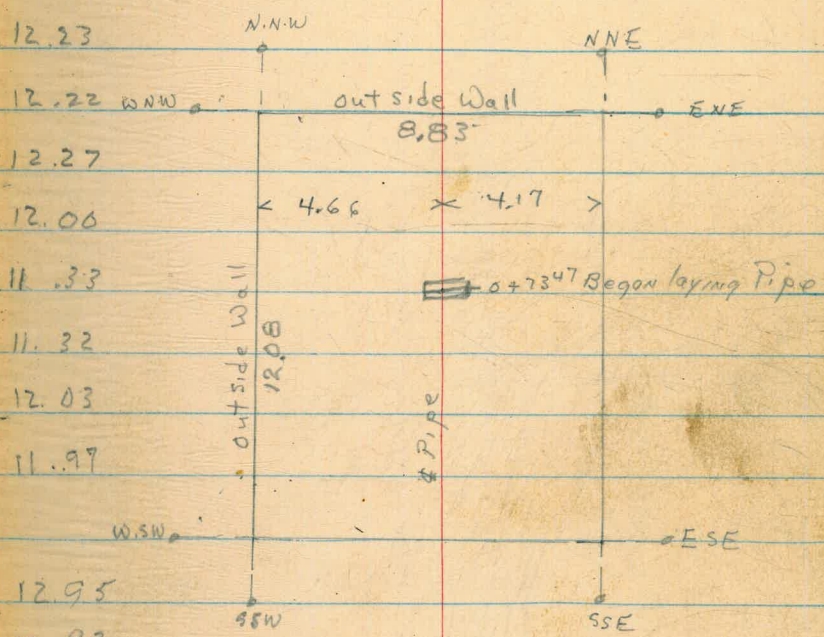 12.23 N.N.W NNE
12.22 WNW outside Wall ENE
8.83
12.27
12.06 4.66 4.17
11.33 0+73⁴⁷ Began laying Pipe
11.32
outside Wall
12.08
12.03
℄ Pipe
11.97
W.SW ESE
12.95
SSW SSE